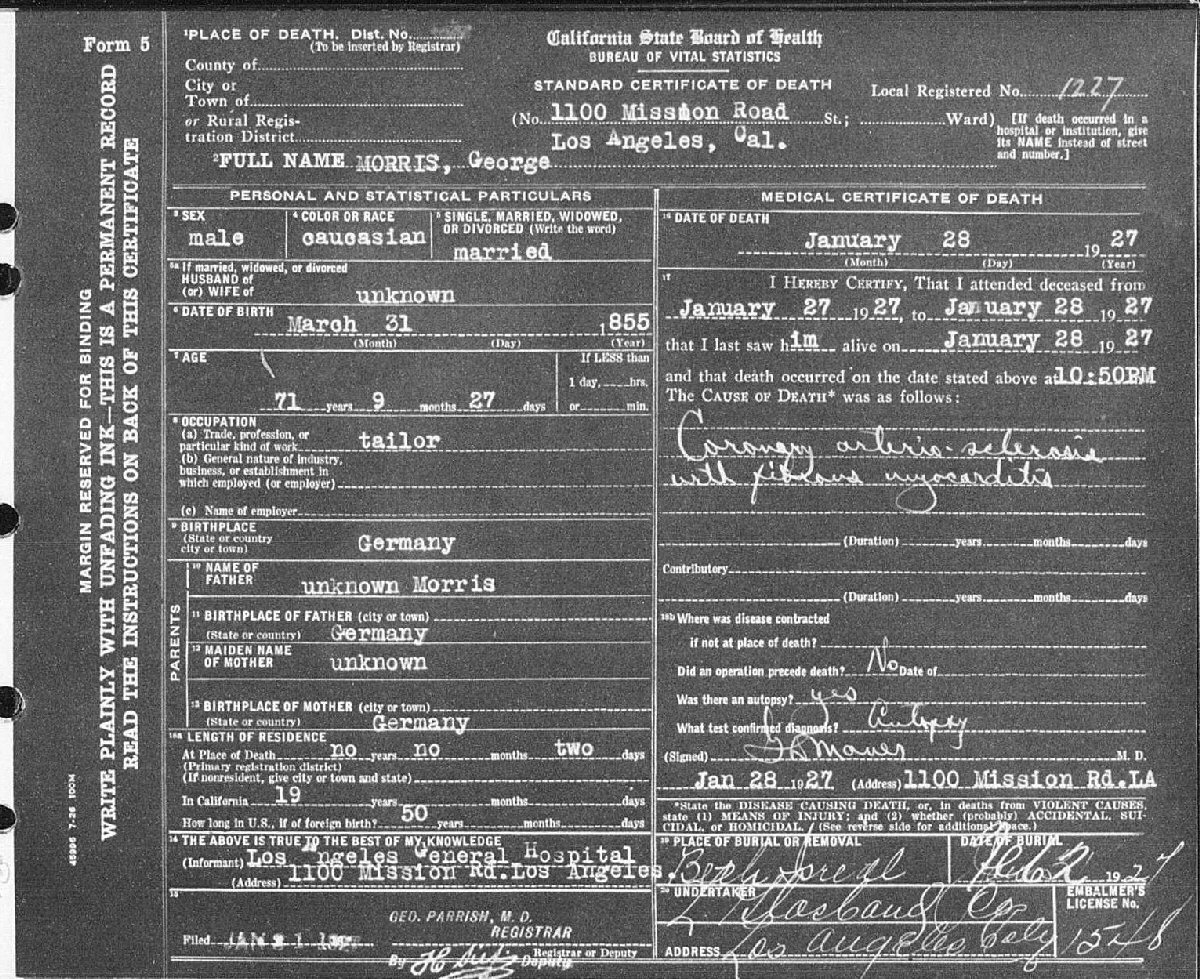 Form 5
MARGIN RESERVED FOR BINDING
WRITE PLAINLY WITH UNFADING INK—THIS IS A PERMANENT RECORD
READ THE INSTRUCTIONS ON BACK OF THIS CERTIFICATE
45896 7-26 100M
1 PLACE OF DEATH. Dist. No.
(To be inserted by Registrar)
County of
City or
Town of
or Rural Regis-
tration District
California State Board of Health
BUREAU OF VITAL STATISTICS
STANDARD CERTIFICATE OF DEATH
Local Registered No. 1227
(No. 1100 Mission Road St.; Ward)
Los Angeles, Cal.
[If death occurred in a
hospital or institution, give
its NAME instead of street
and number.]
2 FULL NAME MORRIS, George
PERSONAL AND STATISTICAL PARTICULARS
3 SEX
male
4 COLOR OR RACE
caucasian
5 SINGLE, MARRIED, WIDOWED,
OR DIVORCED (Write the word)
married
5a If married, widowed, or divorced
HUSBAND of
(or) WIFE of unknown
6 DATE OF BIRTH
March 31 1855
(Month) (Day) (Year)
7 AGE
71 years 9 months 27 days
If LESS than
1 day, hrs.
or min.
8 OCCUPATION
(a) Trade, profession, or
particular kind of work tailor
(b) General nature of industry,
business, or establishment in
which employed (or employer)
(c) Name of employer
9 BIRTHPLACE
(State or country
city or town) Germany
PARENTS
10 NAME OF
FATHER unknown Morris
11 BIRTHPLACE OF FATHER (city or town)
(State or country) Germany
12 MAIDEN NAME
OF MOTHER unknown
13 BIRTHPLACE OF MOTHER (city or town)
(State or country) Germany
LENGTH OF RESIDENCE
At Place of Death no years no months two days
(Primary registration district)
(If nonresident, give city or town and state)
In California 19 years months days
How long in U.S., if of foreign birth? 50 years months days
14 THE ABOVE IS TRUE TO THE BEST OF MY KNOWLEDGE
(Informant) Los Angeles General Hospital
(Address) 1100 Mission Rd. Los Angeles.
15
GEO. PARRISH, M. D.
REGISTRAR
Filed
Registrar or Deputy
By Deputy
MEDICAL CERTIFICATE OF DEATH
16 DATE OF DEATH
January 28 1927
(Month) (Day) (Year)
17
I HEREBY CERTIFY, That I attended deceased from
January 27 1927, to January 28 1927
that I last saw him alive on January 28 1927
and that death occurred on the date stated above at 10:50PM
The CAUSE OF DEATH* was as follows:
Coronary arterio-sclerosis
with fibrous myocarditis
(Duration) years months days
Contributory
(Duration) years months days
18b Where was disease contracted
if not at place of death?
Did an operation precede death? No Date of
Was there an autopsy? yes
What test confirmed diagnosis? Autopsy
(Signed) M. D.
Jan 28 1927 (Address) 1100 Mission Rd. LA
*State the DISEASE CAUSING DEATH, or, in deaths from VIOLENT CAUSES,
state (1) MEANS OF INJURY; and (2) whether (probably) ACCIDENTAL, SUI-
CIDAL, or HOMICIDAL. (See reverse side for additional space.)
19 PLACE OF BURIAL OR REMOVAL
Beth Israel
DATE OF BURIAL
Feb 2 1927
20 UNDERTAKER
Glasband Co
ADDRESS Los Angeles
EMBALMER'S
LICENSE No.
1548